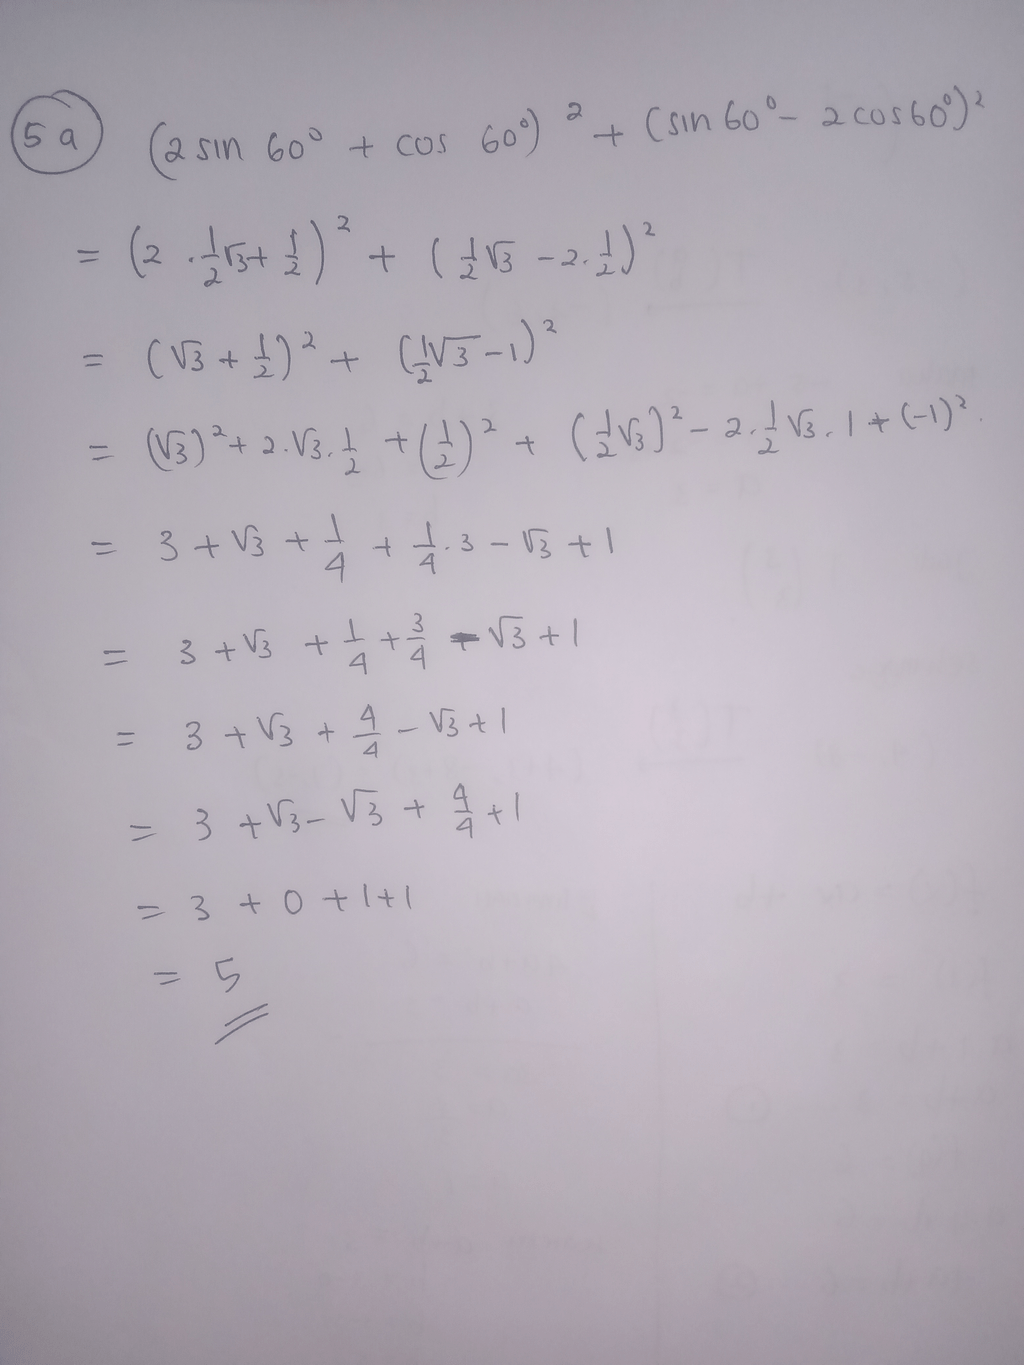 5a (2 sin 60° + cos 60°)² + (sin 60° - 2 cos 60°)²
= (2 . 1/2 √3 + 1/2)² + (1/2 √3 - 2. 1/2)²
= (√3 + 1/2)² + (1/2 √3 - 1)²
= (√3)² + 2. √3. 1/2 + (1/2)² + (1/2 √3)² - 2. 1/2 √3. 1 + (-1)².
= 3 + √3 + 1/4 + 1/4 . 3 - √3 + 1
= 3 + √3 + 1/4 + 3/4 - √3 + 1
= 3 + √3 + 4/4 - √3 + 1
= 3 + √3 - √3 + 4/4 + 1
= 3 + 0 + 1 + 1
= 5